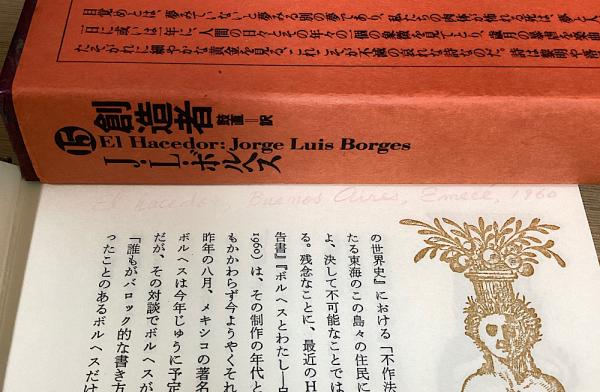 目覚めとは、夢みていないと夢みる別の夢であり、私たちの肉体が怖れる死は、夢と
一日に或いは一年に、人間の日々とその年々の一個の象徴を見てとり、歳月の暴虐を楽曲
たそがれに細やかな黄金を見る、これこそが不滅の哀れな詩なのだ。詩は黎明や
15
創造者
鼓直=訳
El Hacedor: Jorge Luis Borges
J・L・ボルヘス
El Hacedor, Buenos Aires, Emecé, 1960
の世界史』における「不作法
たる東海のこの島々の住民に
よ、決して不可能なことでは
る。残念なことに、最近のH
告書』『ボルヘスとわたし―自
1960)は、その制作の年代と
もかかわらず今ようやくそれ
昨年の八月、メキシコの著名
ボルヘスは今年じゅうに予定
だが、その対談でボルヘスが
「誰もがバロック的な書き方
ったことのあるボルヘスだけ